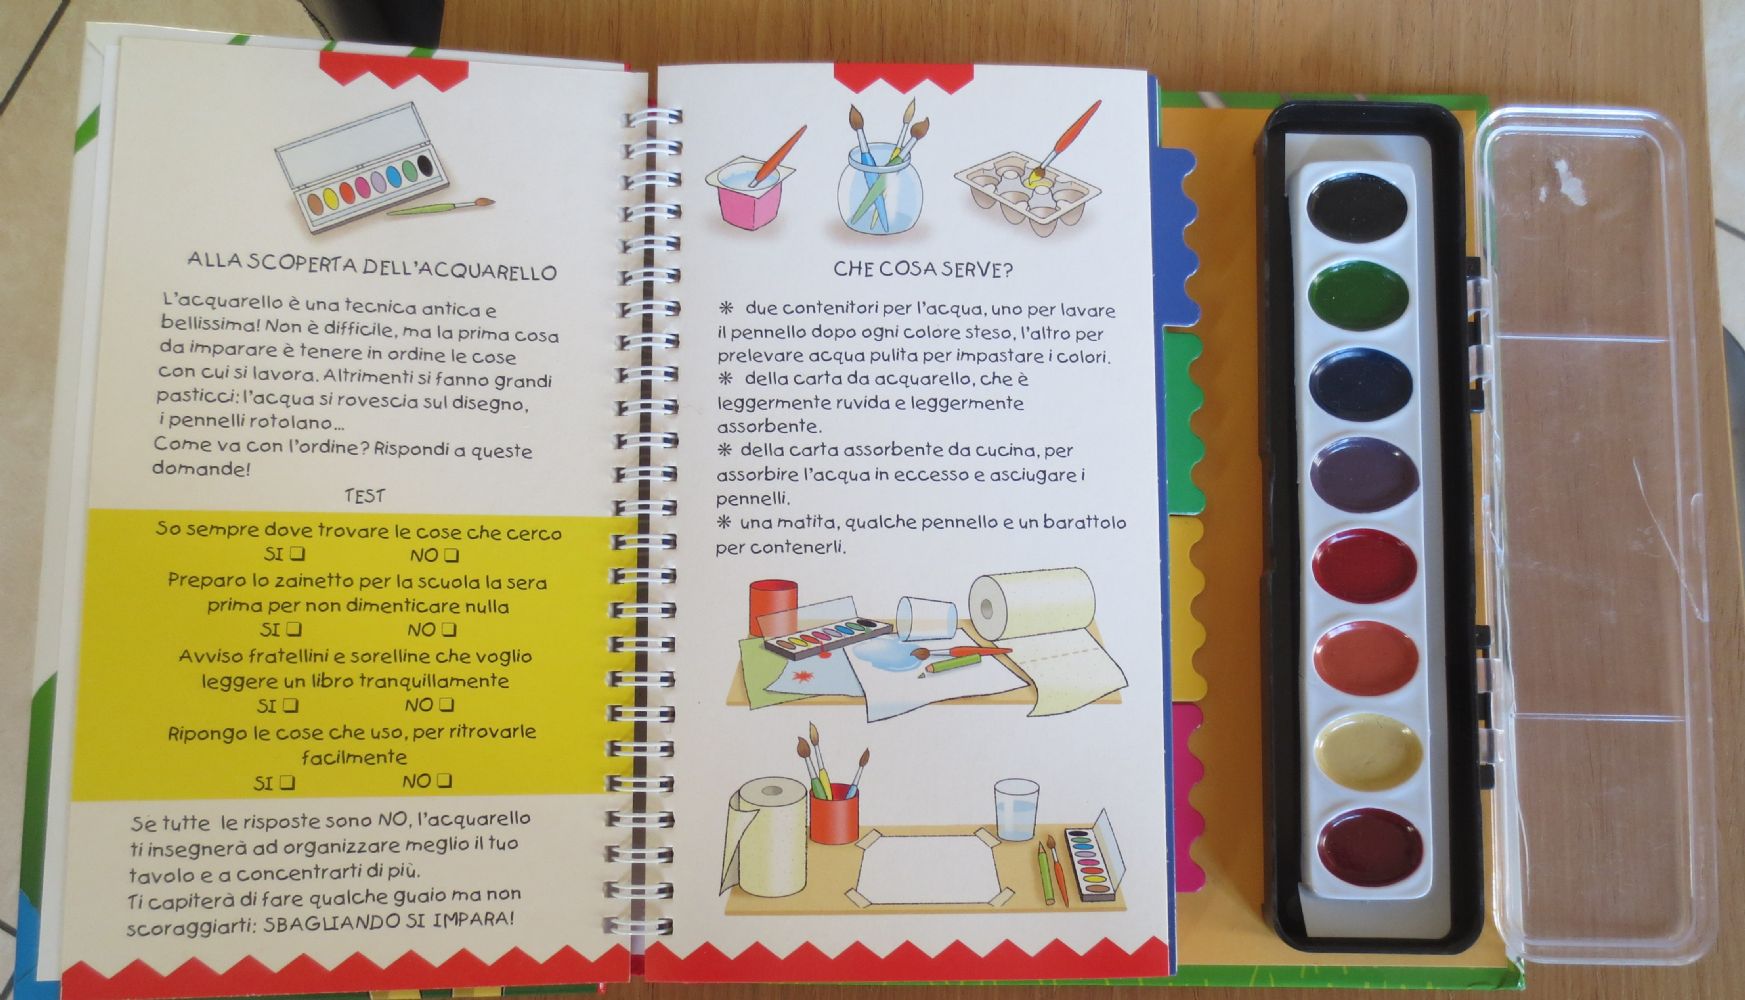 ALLA SCOPERTA DELL'ACQUARELLO
L'acquarello è una tecnica antica e
bellissima! Non è difficile, ma la prima cosa
da imparare è tenere in ordine le cose
con cui si lavora. Altrimenti si fanno grandi
pasticci: l'acqua si rovescia sul disegno,
i pennelli rotolano...
Come va con l'ordine? Rispondi a queste
domande!
TEST
So sempre dove trovare le cose che cerco
SI ❏ NO ❏
Preparo lo zainetto per la scuola la sera
prima per non dimenticare nulla
SI ❏ NO ❏
Avviso fratellini e sorelline che voglio
leggere un libro tranquillamente
SI ❏ NO ❏
Ripongo le cose che uso, per ritrovarle
facilmente
SI ❏ NO ❏
Se tutte le risposte sono NO, l'acquarello
ti insegnerà ad organizzare meglio il tuo
tavolo e a concentrarti di più.
Ti capiterà di fare qualche guaio ma non
scoraggiarti: SBAGLIANDO SI IMPARA!
CHE COSA SERVE?
✻ due contenitori per l'acqua, uno per lavare
il pennello dopo ogni colore steso, l'altro per
prelevare acqua pulita per impastare i colori.
✻ della carta da acquarello, che è
leggermente ruvida e leggermente
assorbente.
✻ della carta assorbente da cucina, per
assorbire l'acqua in eccesso e asciugare i
pennelli.
✻ una matita, qualche pennello e un barattolo
per contenerli.